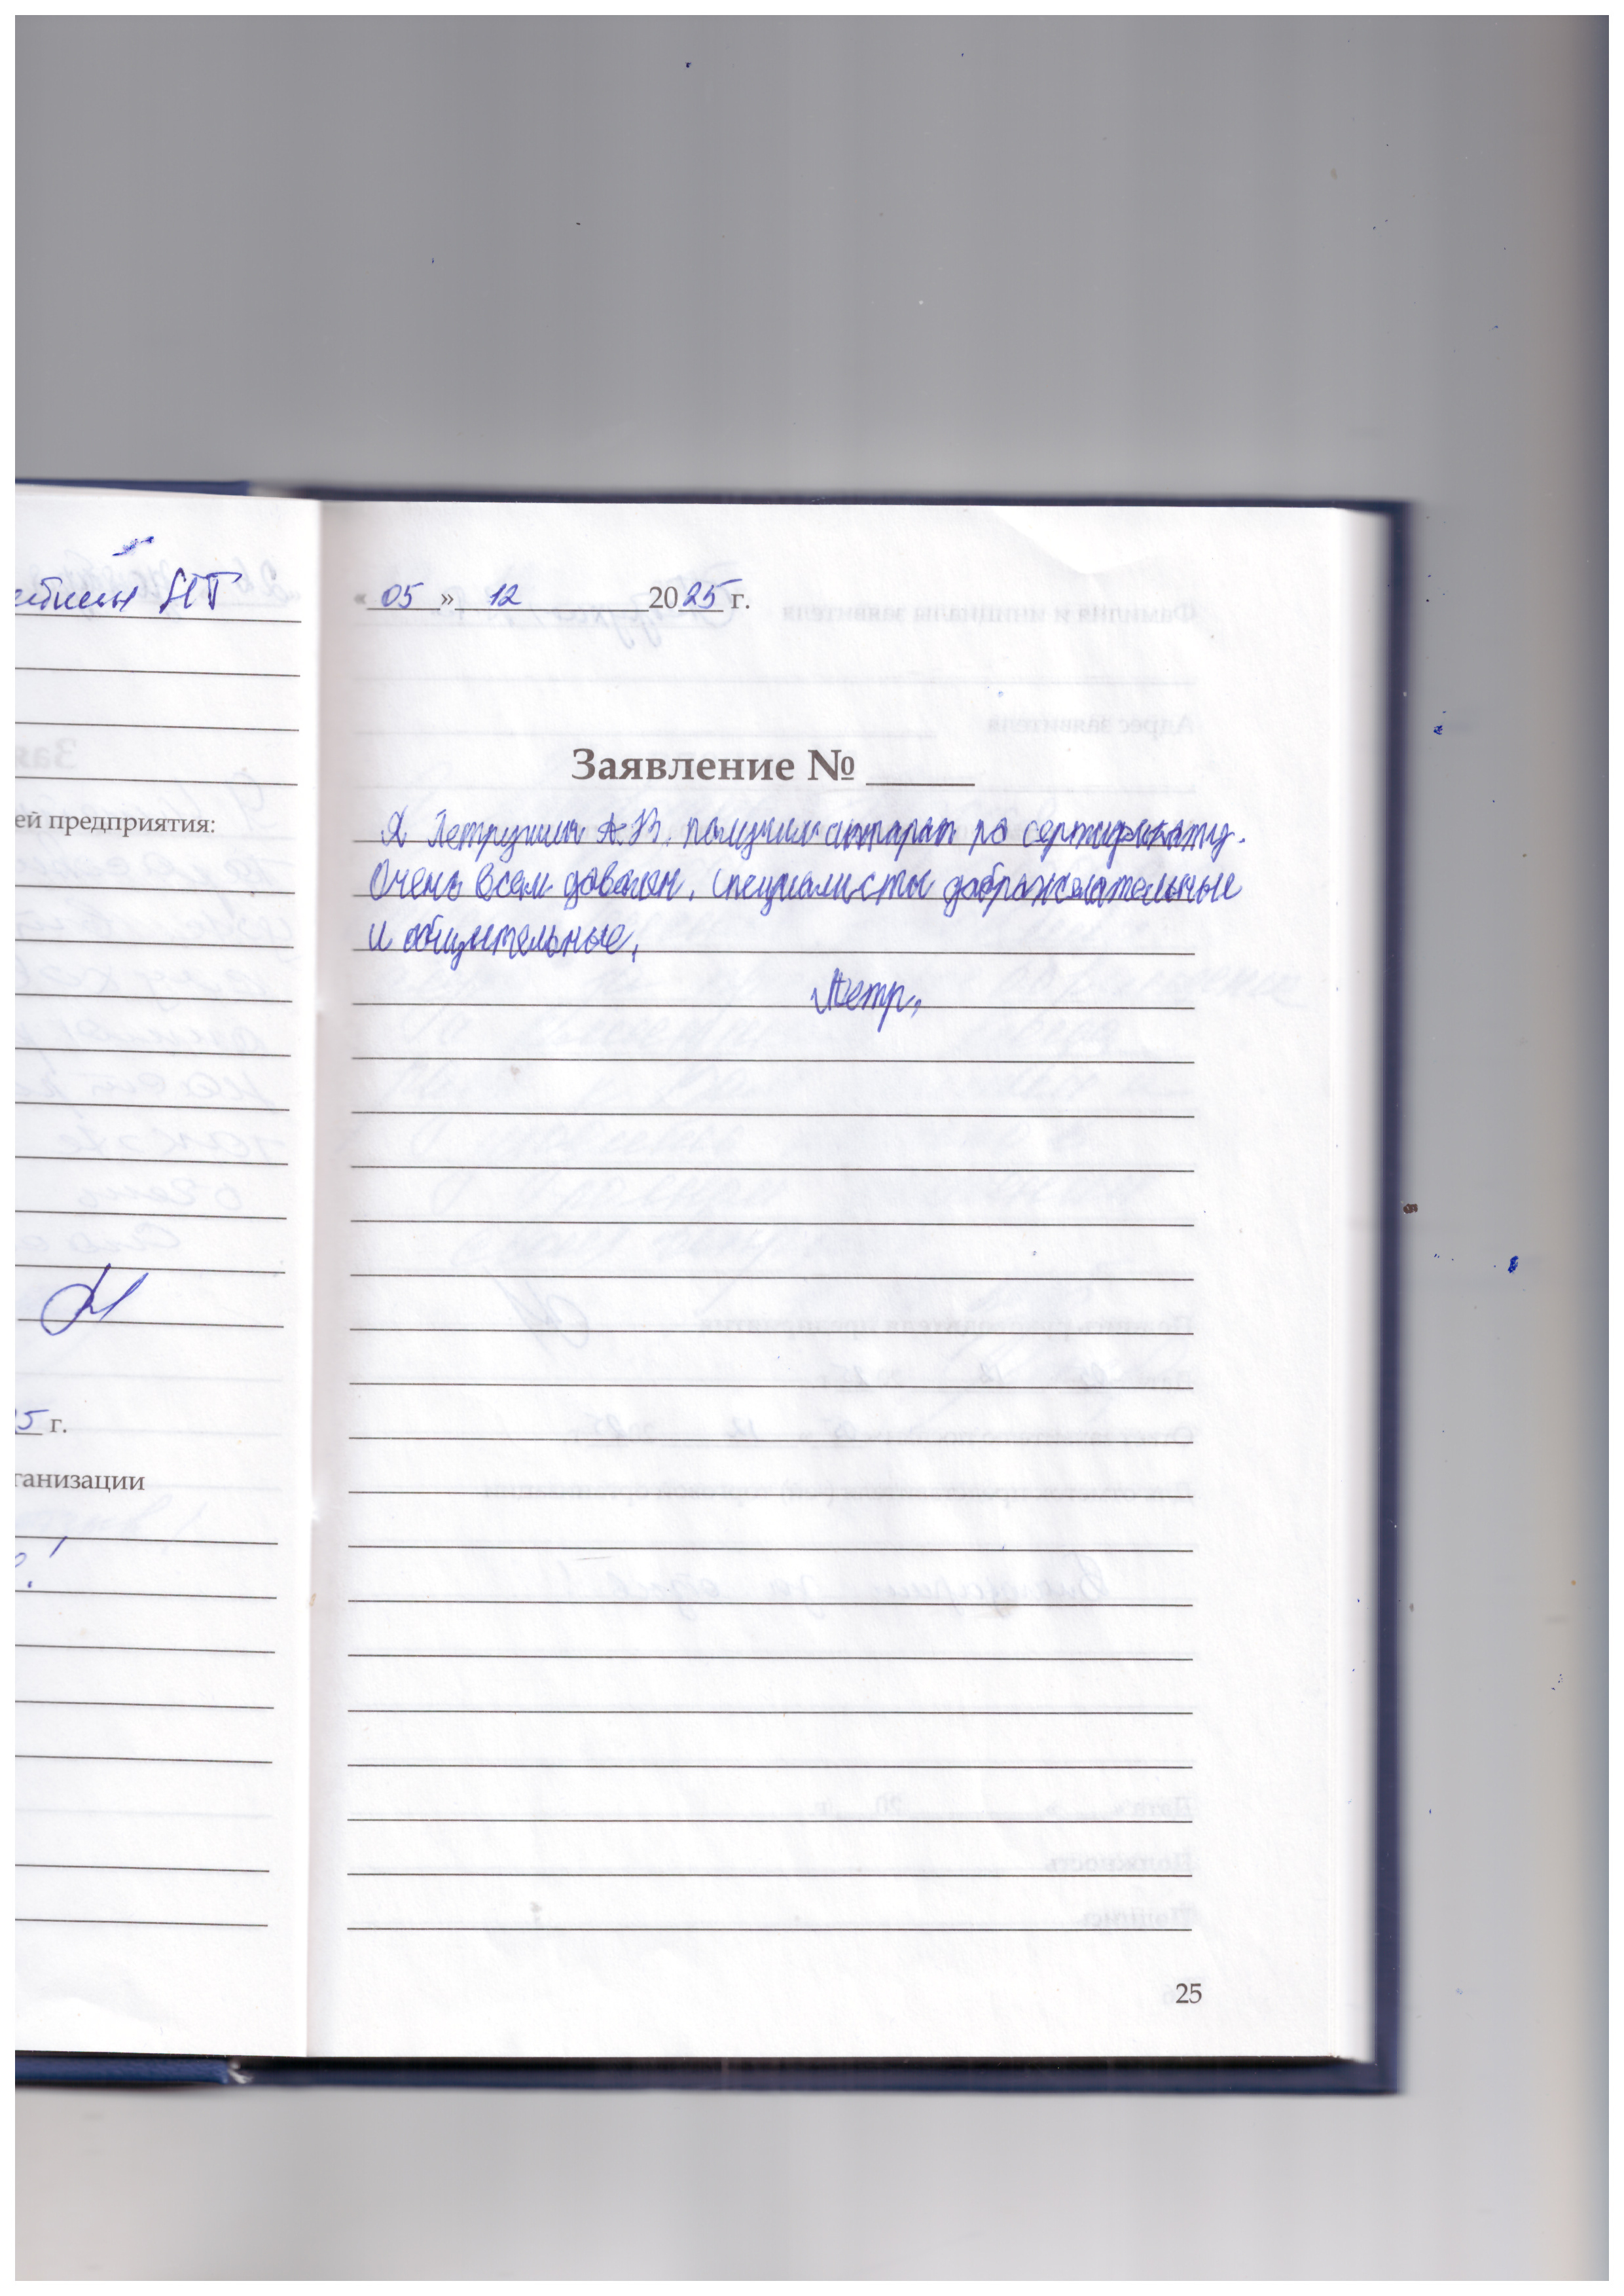 НГ
ей предприятия:
5 г.
ганизации
« 05 » 12 2025 г.
Заявление №
Я Петрушин А.В. получил аппарат по сертификату.
Очень всем доволен. Специалисты доброжелательные
и общительные.
Петр.
25